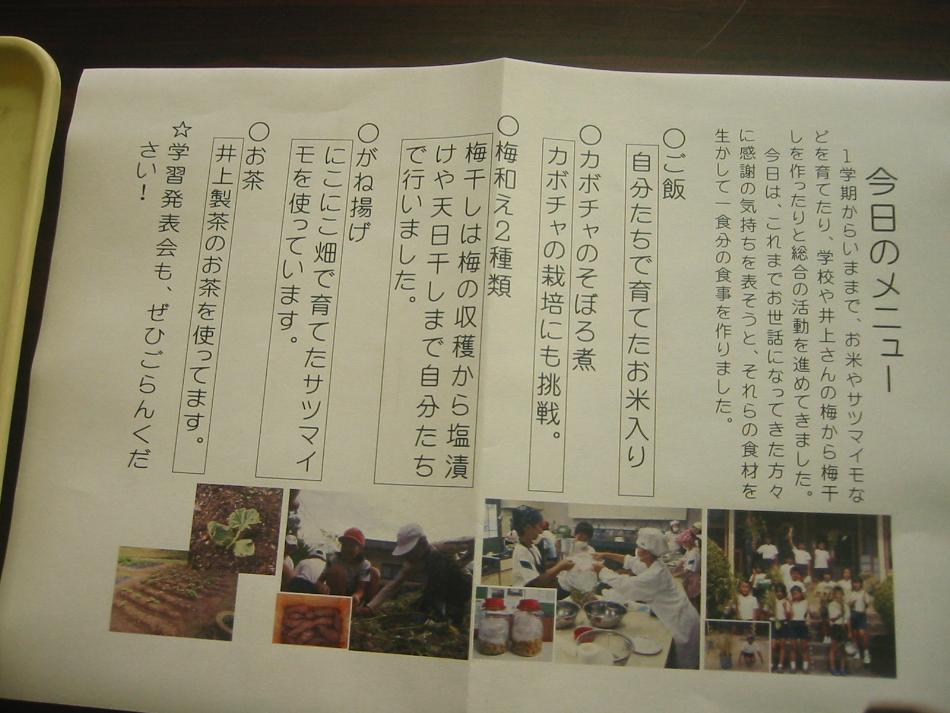 今日のメニュー
1学期からいままで、お米やサツマイモな
どを育てたり、学校や井上さんの梅から梅干
しを作ったりと総合の活動を進めてきました。
今日は、これまでお世話になってきた方々
に感謝の気持ちを表そうと、それらの食材を
生かして一食分の食事を作りました。
○ご飯
自分たちで育てたお米入り
○カボチャのそぼろ煮
カボチャの栽培にも挑戦。
○梅和え2種類
梅干しは梅の収穫から塩漬
けや天日干しまで自分たち
で行いました。
○がね揚げ
にこにこ畑で育てたサツマイ
モを使っています。
○お茶
井上製茶のお茶を使ってます。
☆学習発表会も、ぜひごらんくだ
さい！